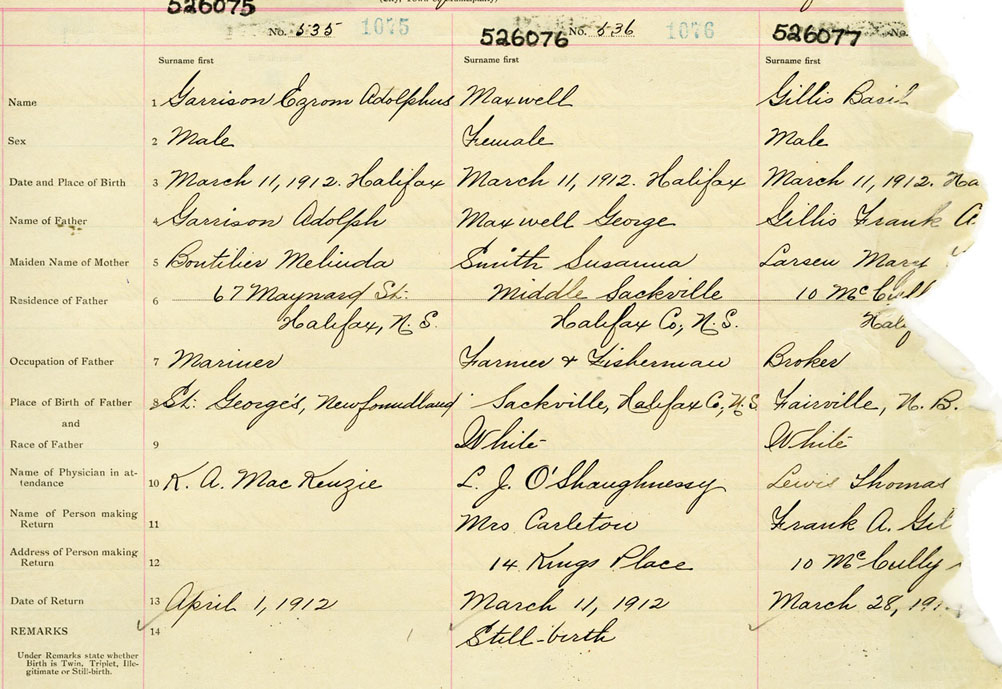 526075
No. 535 1075
526076 No. 536 1076
526077 No.
Surname first Surname first Surname first
Name 1 Garrison Egrom Adolphus Maxwell Gillis Basil
Sex 2 Male Female Male
Date and Place of Birth 3 March 11, 1912. Halifax March 11, 1912. Halifax March 11, 1912. Ha
Name of Father 4 Garrison Adolph Maxwell George Gillis Frank A.
Maiden Name of Mother 5 Boutilier Melinda Smith Susanna Larsen Mary
Residence of Father 6 67 Maynard St: Middle Sackville 10 McCull
Halifax, N.S. Halifax Co, N.S. Halif
Occupation of Father 7 Mariner Farmer & Fisherman Broker
Place of Birth of Father 8 St. George's, Newfoundland Sackville, Halifax Co, N.S Fairville, N.B.
and
Race of Father 9 White White
Name of Physician in at-
tendance 10 K. A. MacKenzie L. J. O'Shaughnessy Lewis Thomas
Name of Person making
Return 11 Mrs Carleton Frank A. Gil
Address of Person making
Return 12 14 Kings Place 10 McCully
Date of Return 13 April 1, 1912 March 11, 1912 March 28, 191
REMARKS 14 Still-birth
Under Remarks state whether
Birth is Twin, Triplet, Ille-
gitimate or Still-birth.